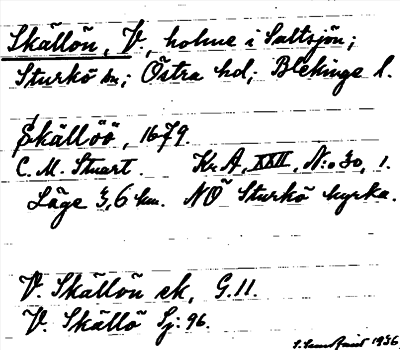 Skällön, V, holme i Saltsjön;
Sturkö sn; Östra hd; Blekinge l.
Skällöö, 1679.
C. M. Stuart. Kr. A, XXII, N:o 30, 1.
Läge 3,6 km. NÖ Sturkö kyrka.
V. Skällön ek, G. 11.
V. Skällö Sj: 96.
1936